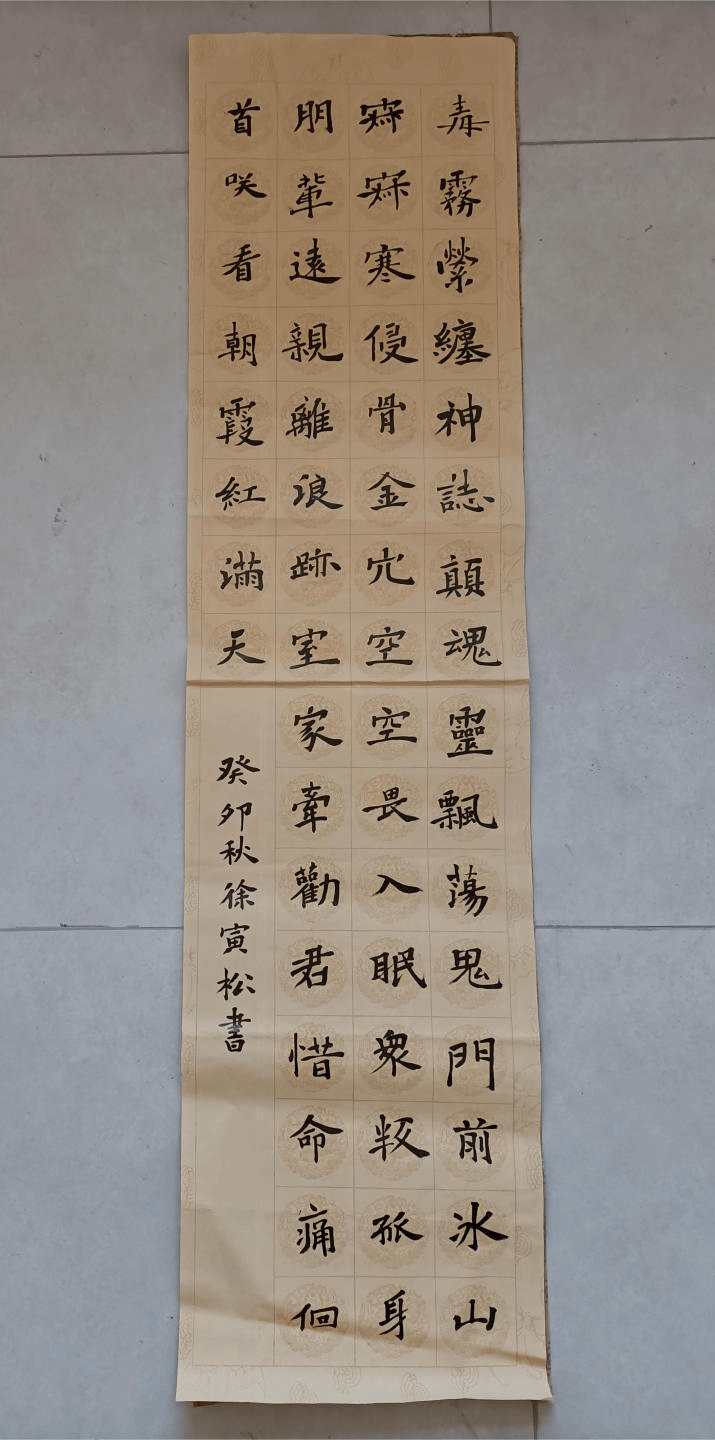 毒霧縈纏神誌顛魂靈飄蕩鬼門前冰山
寂寂寒侵骨金穴空空畏入眠衆叛孤身
朋輩遠親離浪跡室家牽勸君惜命痛佪
首咲看朝霞紅滿天
癸卯秋徐寅松書